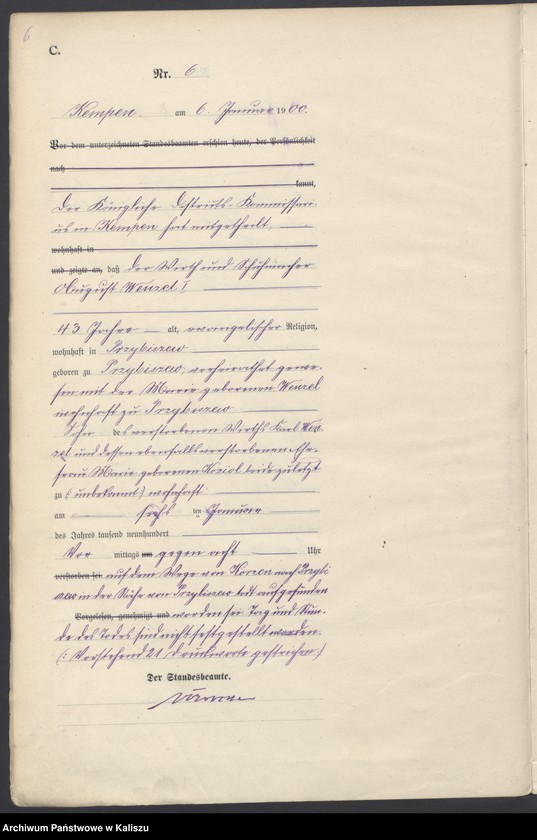 6
C.
Nr. 6
Kempen am 6. Januar 1900.
Vor dem unterzeichneten Standesbeamten erschien heute, der Persönlichkeit
nach
kannt,
Der Königliche Distrikts-Kommissari-
us in Kempen hat mitgetheilt,
wohnhaft in
und zeigte an, daß der Wirth und Schuhmacher
August Wenzel I
43 Jahre alt, evangelischer Religion,
wohnhaft in Przybiszewo
geboren zu Przybiszewo, verheirathet gewe-
sen mit der Marie geborenen Wenzel
wohnhaft zu Przybiszewo
Sohn des verstorbenen Wirths Karl Wen-
zel und dessen ebenfalls verstorbenen Ehe-
frau Marie geborenen Koziol beide zuletzt
zu (unbekannt) wohnhaft
am sechs ten Januar
des Jahres tausend neunhundert
Vor mittags um gegen acht Uhr
verstorben sei. auf dem Wege von Korzen nach Przybi-
szewo in der Nähe von Przybiszewo todt aufgefunden
Vorgelesen, genehmigt und worden sei. Tag und Stun-
de des Todes sind nicht festgestellt worden.
(: Vorstehend 21 Druckworte gestrichen)
Der Standesbeamte.
Archiwum Państwowe w Kaliszu